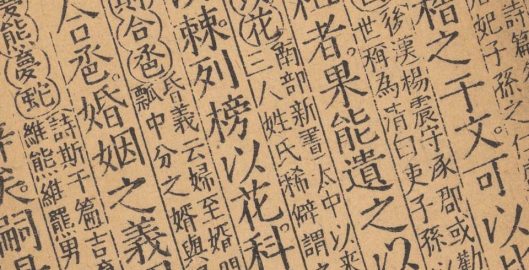 詩篇
后妃子孫之仁
梧之干文可以
後漢楊震守承郡或勸
世稱為清白吏子孫
者果能遺之以
以花
南部新書太中以來
三人姓氏稀僻謂
棘列榜以花科
合巹
昏義云婦至婚
瓢中分之婿與
合巹婚姻之義
夢熊夢蛇
詩斯干篇吉
維熊維羆男
矣嗣